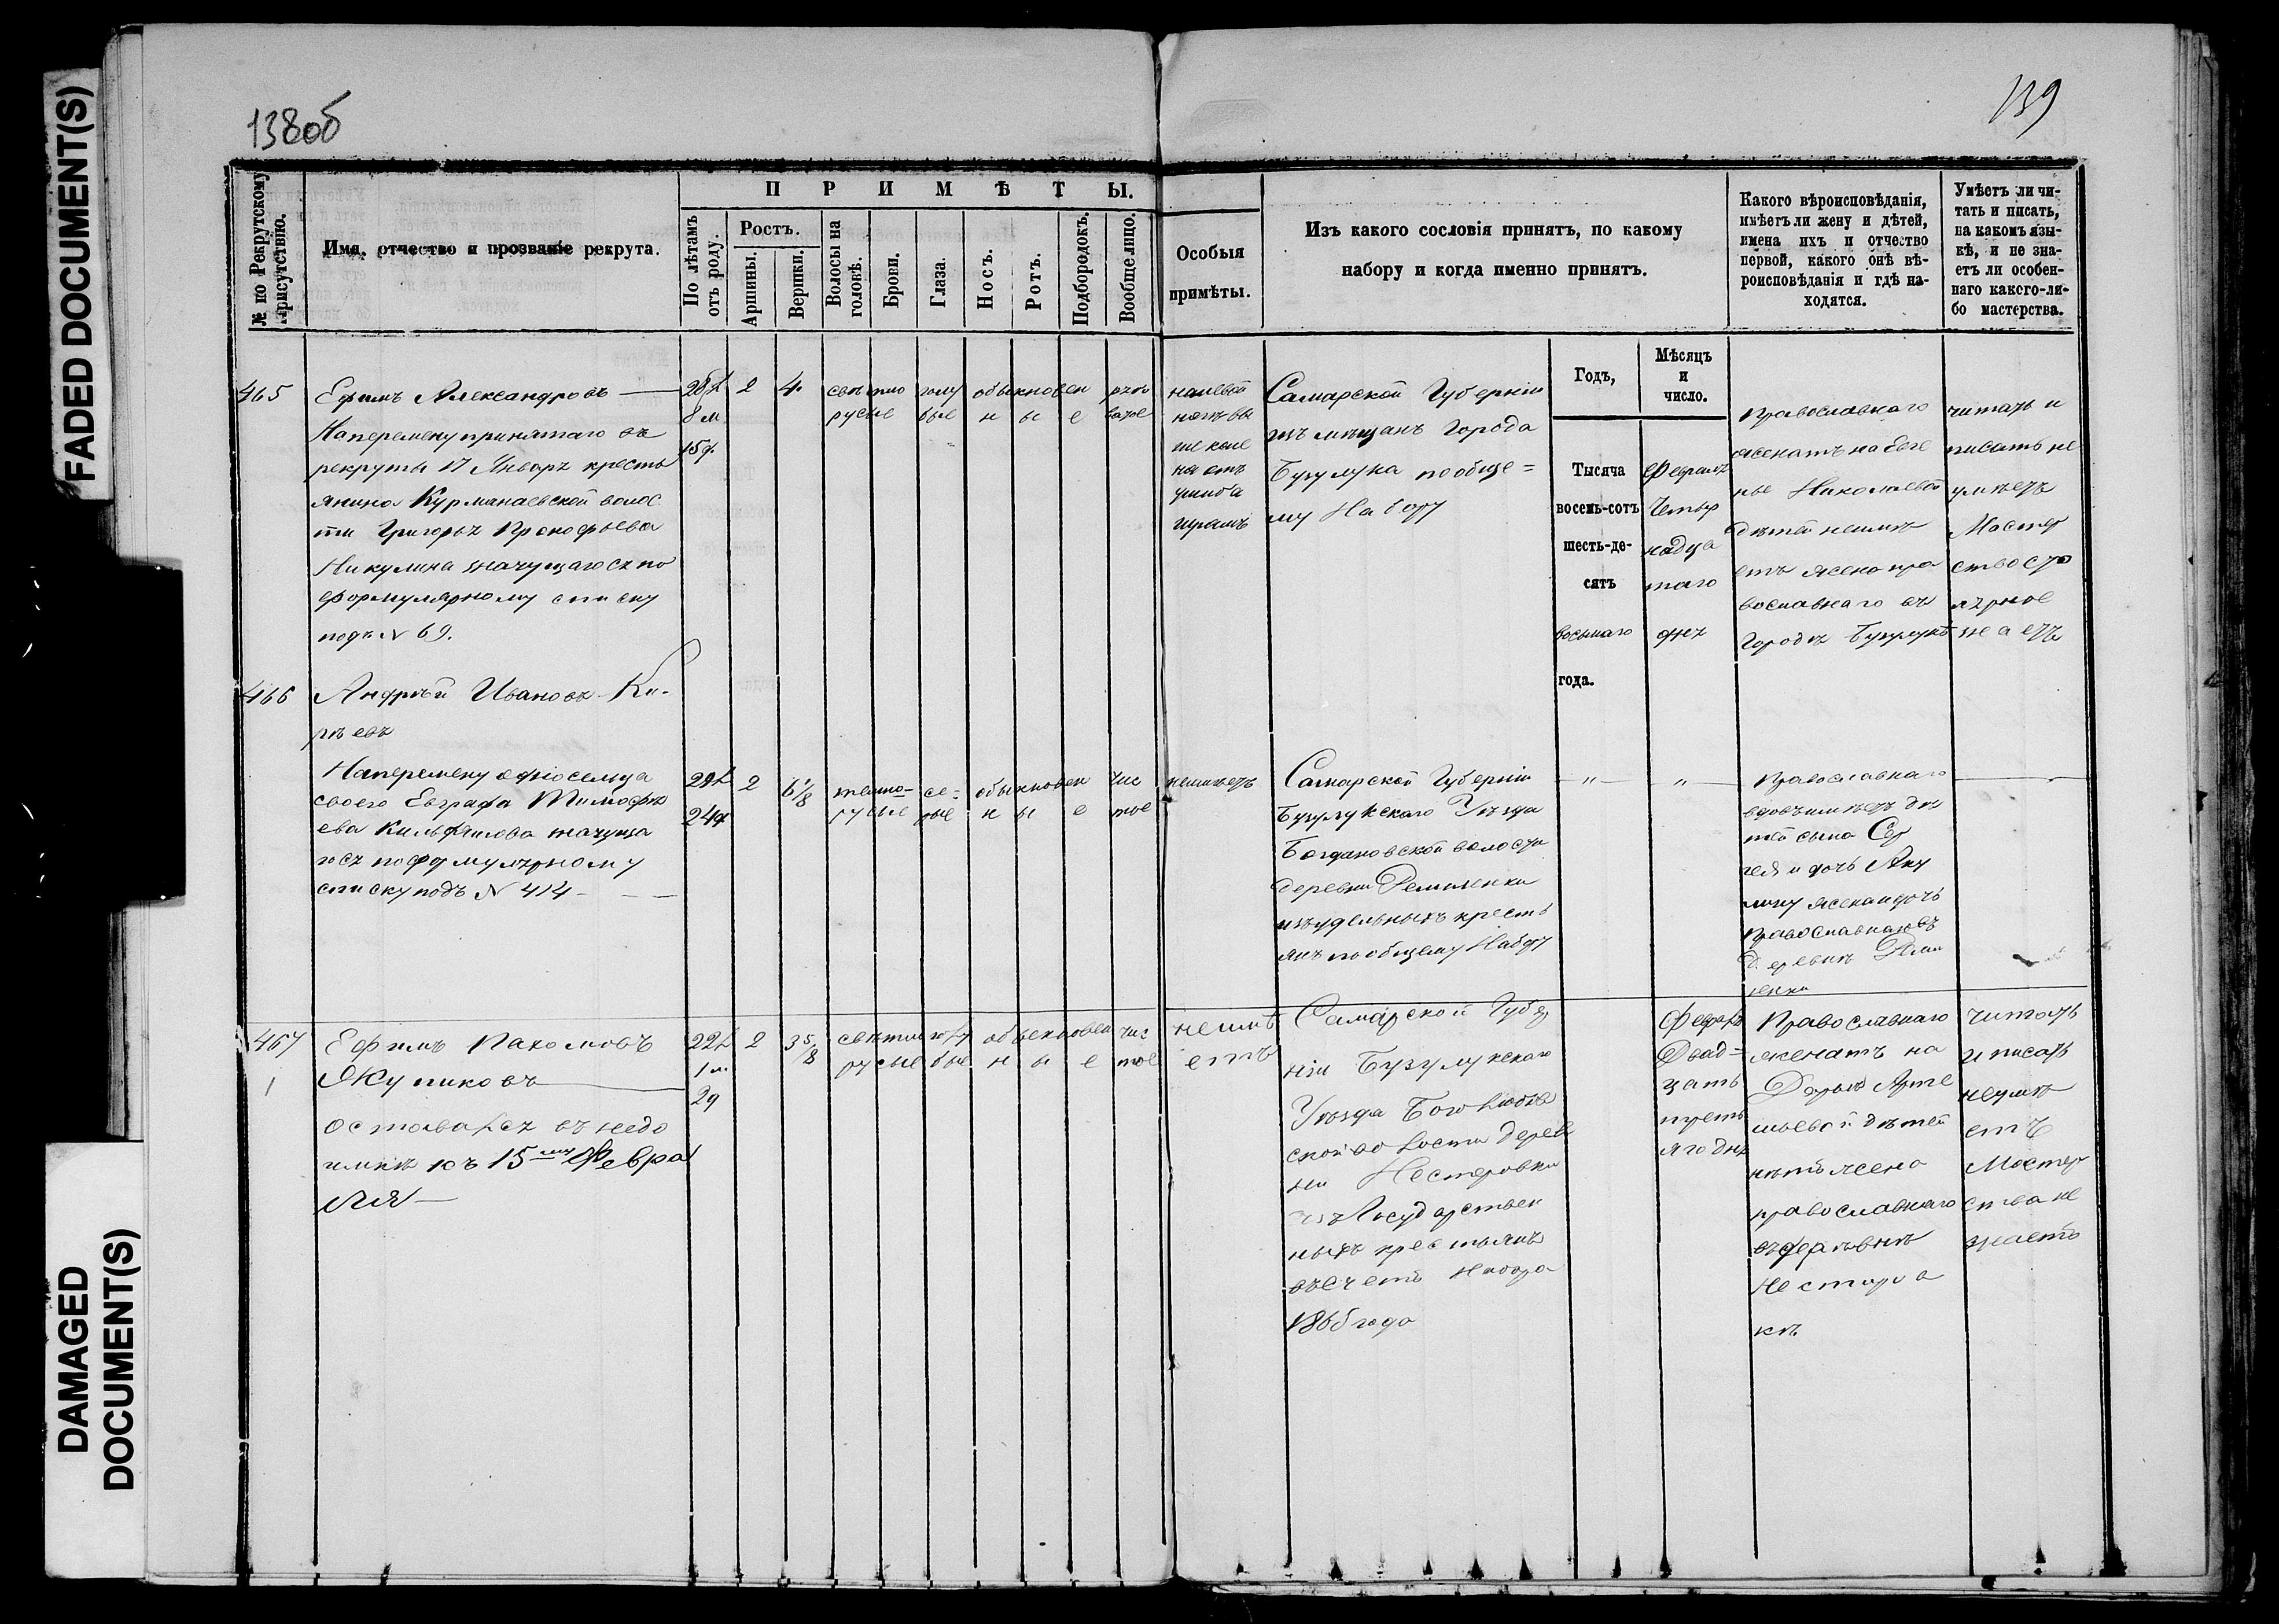 FADED DOCUMENT(S)
DAMAGED
DOCUMENT(S)
138об
139
№ по Рекрутскому
Присутствію.
Имя, отчество и прозваніе рекрута.
ПРИМѢТЫ.
По лѣтамъ
отъ роду.
Ростъ.
Аршины.
Вершки.
Волосы на
головѣ.
Брови.
Глаза.
Носъ.
Ротъ.
Подбородокъ.
Вообще лицо.
Особыя
примѣты.
Изъ какого сословія принятъ, по какому
набору и когда именно принятъ.
Какого вѣроисповѣданія,
имѣетъ ли жену и дѣтей,
имена ихъ и отчество
первой, какого онѣ вѣ-
роисповѣданія и гдѣ на-
ходятся.
Умѣетъ ли чи-
тать и писать,
на какомъ язы-
кѣ, и не зна-
етъ ли особен-
наго какого-ли-
бо мастерства.
Годъ,
Мѣсяцъ
и
число.
465
Ефимъ Александровъ
Наперемену принятаго въ
рекруты 17 Января кресть
янина Курманаевской волос
ти Григорья Прокофьева
Никулина значущагося по
формулярному списку
подъ N 69.
28 л
8 м
15 д.
2
4
свѣтло
русые
голу
бые
обыкновен
н ы е
рябо
ватое
на левой
ногѣ вы
ше коле
на отъ
ушиба
шрамъ
Самарской Губерніи
изъ мѣщанъ Города
Бузулука по обще=
му Набору
Тысяча
восемь-сотъ
шесть-де-
сятъ
восьмаго
года.
Февраля
Четыр
надца
таго
дня
Православнаго
женатъ на Евге
нье Николаевой
дѣтей неимѣ
етъ жена пра
вославнаго въ
Городѣ Бузулукѣ
читать и
писать не
умѣетъ
Мастер
ство сто
лярное
знаетъ
466
Андрѣй Ивановъ Ки-
рѣевъ
Наперемену односельца
своего Евграфа Тимофѣ
ева значуща
гося по формулярному
списку подъ N 414
24 д
2
6 1/8
темно-
русые
се=
рые
обыкновен
н ы е
чис
тое
неимѣетъ
Самарской Губерніи
Бузулукскаго Уѣзда
Богдановской волости
деревни
изъ удельныхъ кресть
янъ по общему Набору
— „ —
„ —
Православнаго
вдовъ имѣетъ дѣ
тей сына Сер
гея и дочь Аку
лину жена и дочь
православнаго въ
Деревнѣ
467
1
Ефимъ Пахомовъ
Якупиковъ
Оставался въ недо
имкѣ къ 15му Февра
ля
22 л
1 м.
2 д
2
3 5/8
свѣтло
русые
голу
бые
обыкновен
н ы е
чис
тое
неимѣ
етъ
Самарской Губер
ніи Бузулукскаго
Уѣзда Боголюбов
ской волости Дерев
ни Нестеровки
изъ Государствен
ныхъ крестьянъ
въ счетъ Набора
года
Февраля
Двад=
цать
треть
яго дня
Православнаго
женатъ на
Дарьѣ Арте
мьевой дѣтей
нѣтъ жена
православнаго
въ деревнѣ
Нестеров
кѣ
Читать
и писать
неумѣ
етъ
Мастер
ства не
знаетъ